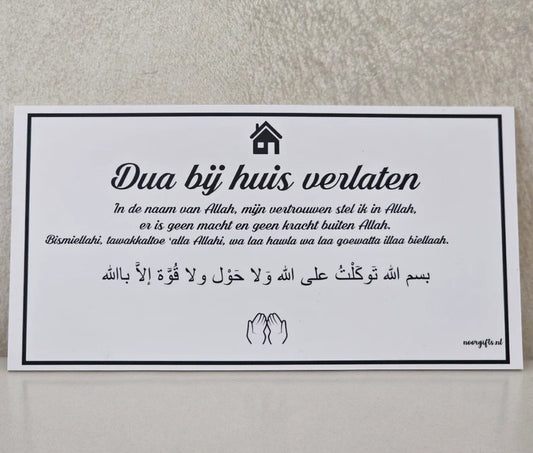 Dua bij huis verlaten
In de naam van Allah, mijn vertrouwen stel ik in Allah,
er is geen macht en geen kracht buiten Allah.
Bismiellahi, tawakkaltoe 'alla Allahi, wa laa hawla wa laa goewatta illaa biellaah.
بسم الله تَوكَلْتُ على الله وَلا حَوْل ولا قُوَّة إلاَّ باالله
noorgifts.nl